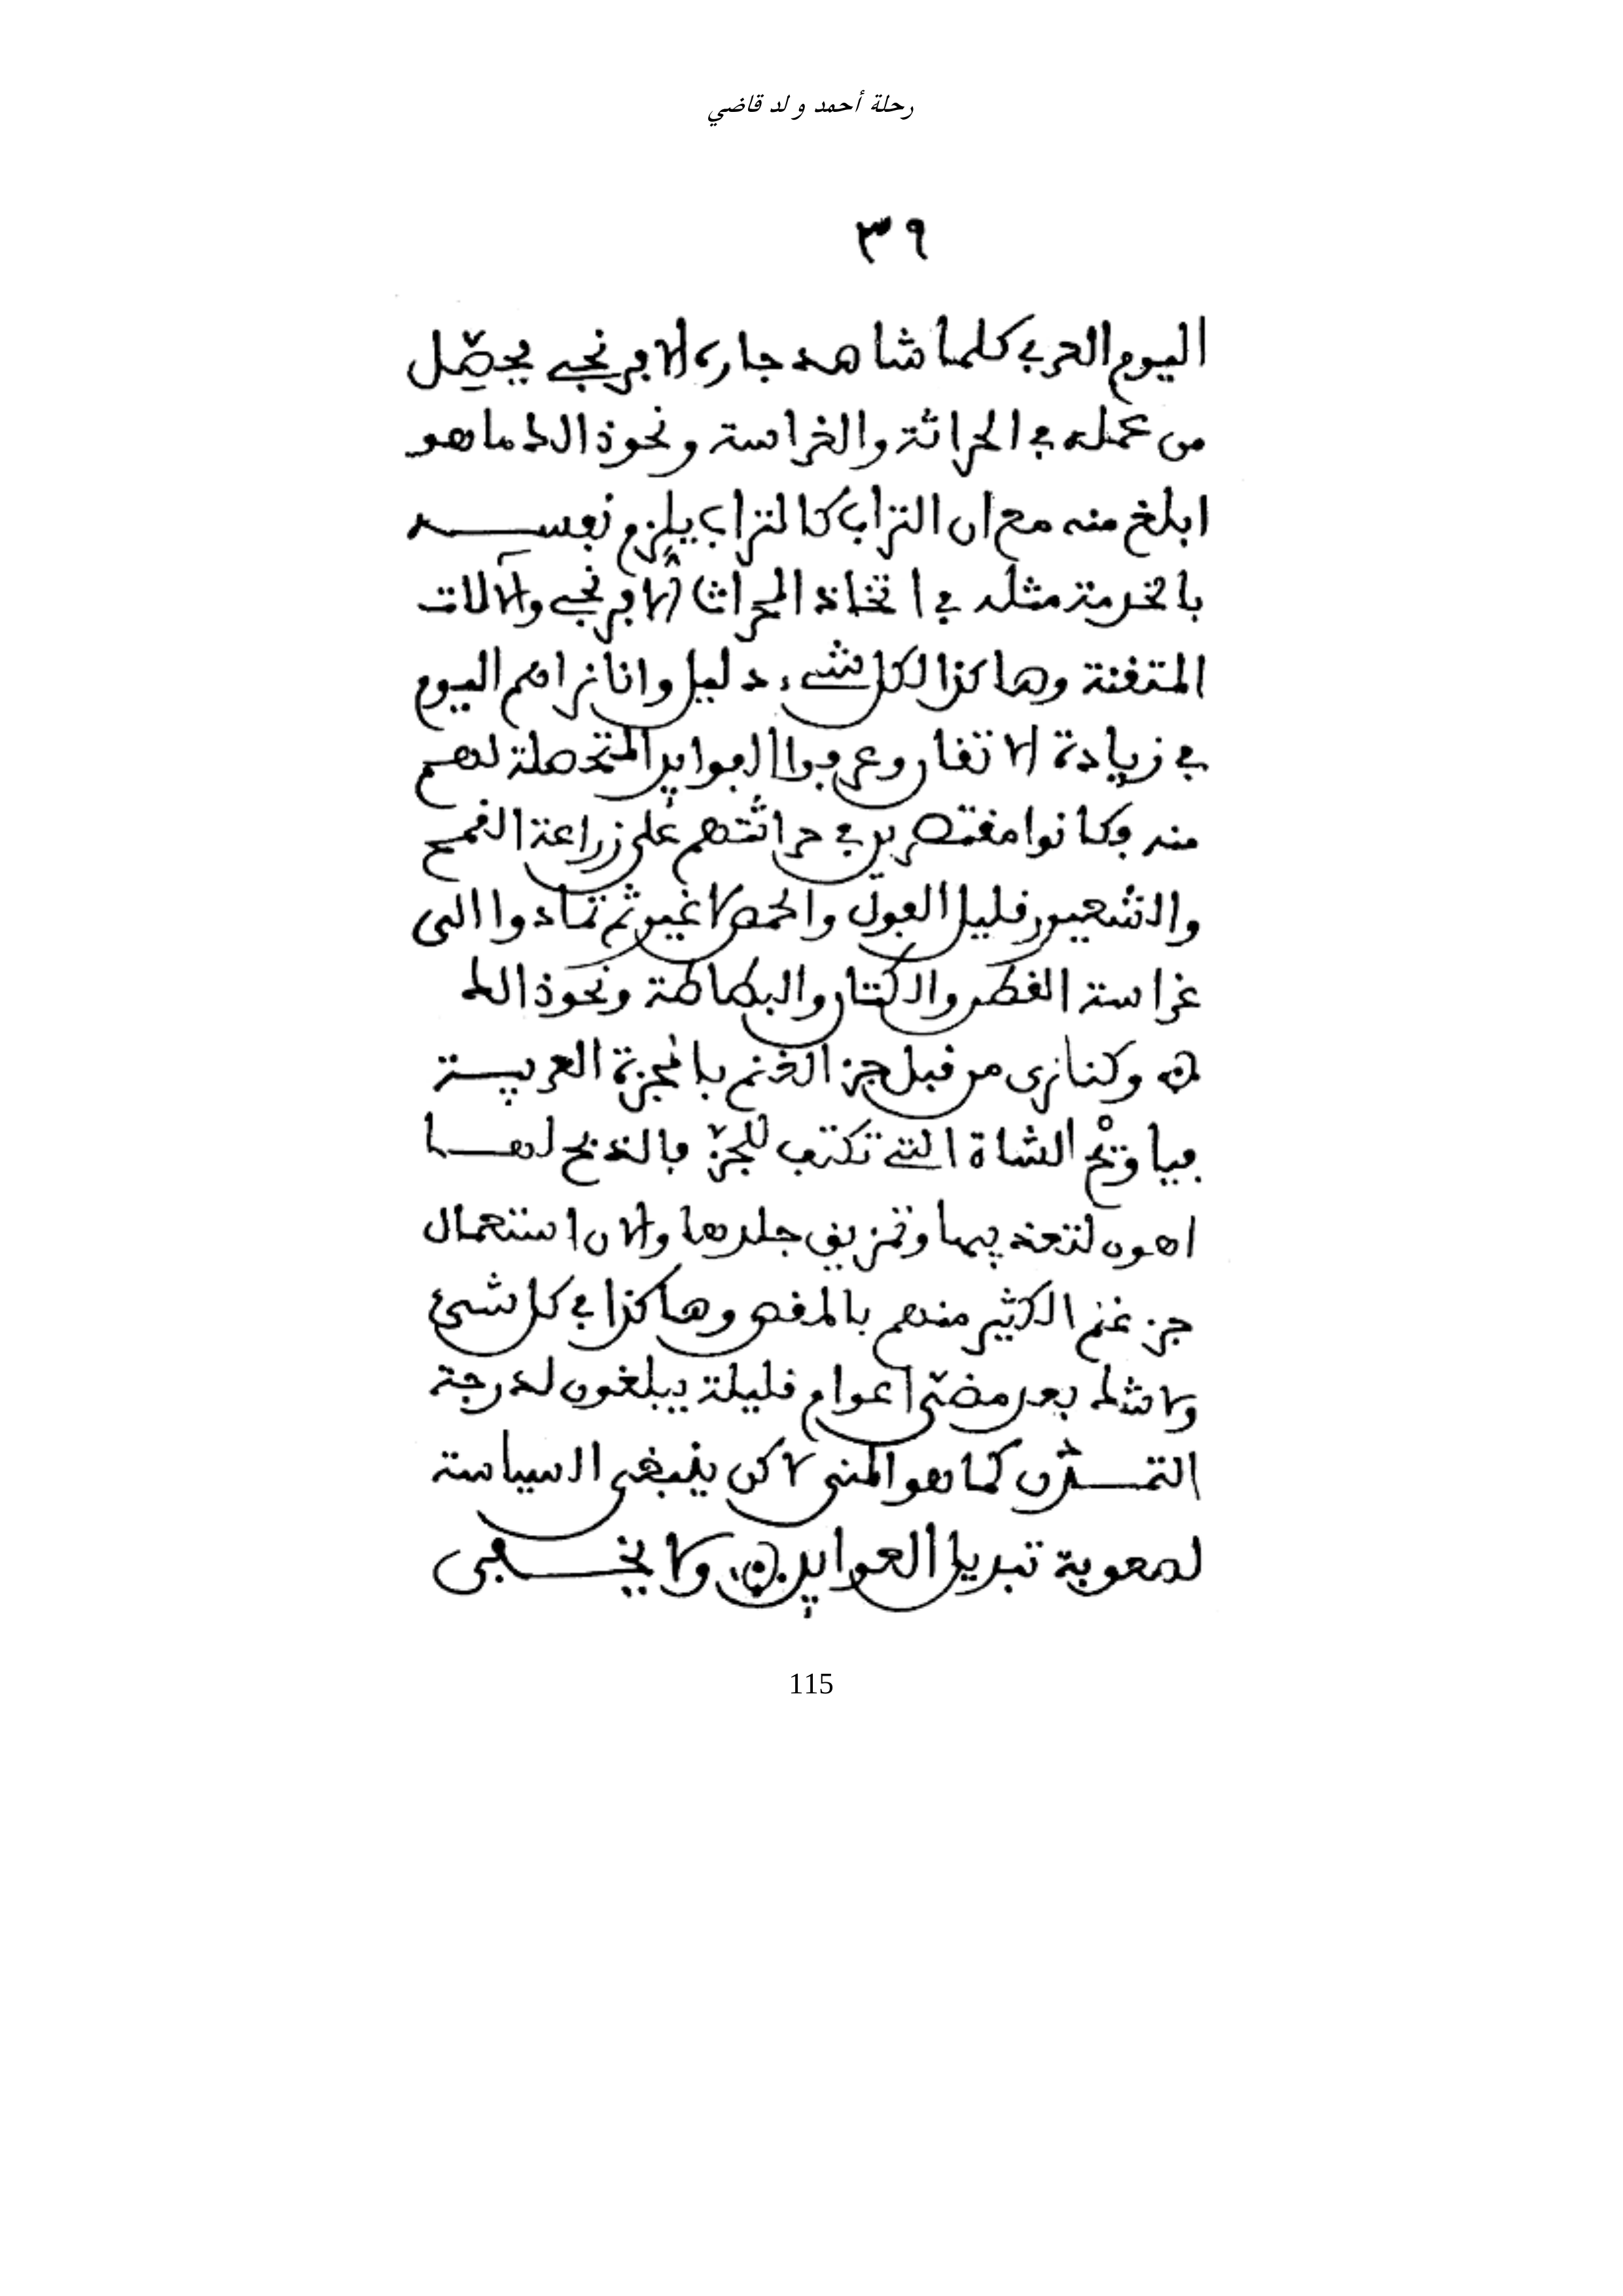 رحلة أحمد ولد قاضي
٣٩
اليوم العربي كلما شاهد جاره الافرنجي يحصّل
من عمله في الحراثة والغراسة ونحو ذالك ما هو
ابلغ منه مع ان التراب كالتراب يلزم نفسه
بالخدمة مثله في اتخاذ المحراث الافرنجي والآلات
المتقنة وهاكذا لكل شيء دليل وانا نراهم اليوم
في زيادة الاتقان وعرفوا الفوايد المتحصلة لهم
منه فكانوا مقتصرين في حراثتهم على زراعة القمح
والشعير وقليل الفول والحمص لا غير ثم تمادوا الى
غراسة القطن والكتان والبطاطة ونحو ذالك
وكنا نرى من قبل جز الغنم بالمجزة العربية
فيا ويْح الشاة التي تكتب للجزّ فالذبح لها
اهون لتعذيبها وتمزيق جلدها والان استعمال
جز غنم الكثير منهم بالمقص وهاكذا في كل شيئ
ولا شك بعد مضيّ اعوام قليلة يبلغون لدرجة
التمدّن كما هو المنى لاكن ينبغي السياسة
لصعوبة تبديل العوايد ولا يخفى
115